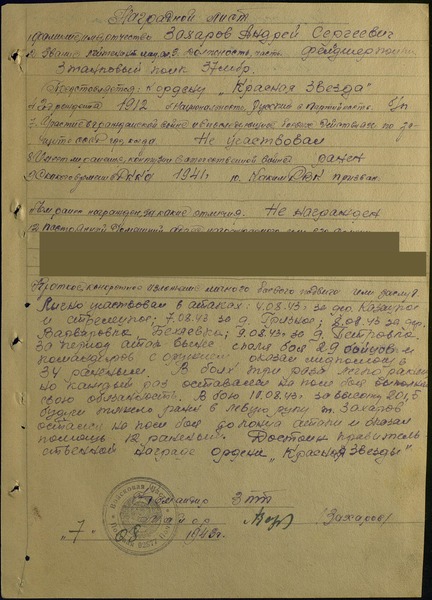 Наградной лист
Фамилия имя отчество Захаров Андрей Сергеевич
2. Звание 3. Должность, часть фельдшер
3 танковый полк 37 мбр.
Представляется к ордену „Красная Звезда"
4. Год рождения 1912 5. Национальность Русский 6. Партийность б/п
7. Участие в гражданской войне и последующих боевых действиях по за-
щите СССР где, когда Не участвовал
8. Имеет ли ранения, контузии в отечественной войне ранен
9. С какого времени в РККА 1941 г. 10. Каким РВК призван
Чем ранее награжден, за какие отличия. Не награжден
12. Постоянный домашний адрес
Краткое конкретное изложение личного боевого подвига или заслуг
Лично участвовал в атаках: 4.08.43 г. за дер. Казацкое
и стрелецкое; 7.08.43 за д. Грязное; 8.08.43 за дер.
Варваровка, 9.08.43 г. за д. Петровка
За период атак вынес с поля боя 29 бойцов и
командиров с оружием, оказал медпомощь
34 раненым. В боях три раза легко ранен
но каждый раз оставался на поле боя выполнял
свою обязанность. В бою 10.08.43 г за высоту 201,5
будучи тяжело ранен в левую руку т. Захаров
остался на поле боя до конца атаки и оказал
помощь 12 раненым. Достоин правитель-
ственной награде ордена „Красная Звезды"
Командир 3 тп
майор (Захаров)
„7" 08 1943 г.